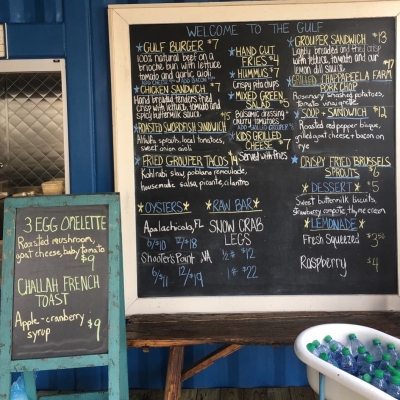 WELCOME TO THE GULF
GULF BURGER $7
100% natural beef on a
brioche bun with lettuce
tomato and garlic aioli
CHICKEN SANDWICH $7
Hand breaded tenders fried
crisp with lettuce, tomato and
spicy buttermilk sauce
ROASTED SWORDFISH SANDWICH $15
sprouts, local tomatoes,
sweet onion aioli
FRIED GROUPER TACOS $14
Kohlrabi slaw, poblano remoulade,
housemade salsa, picante, cilantro
HAND CUT
FRIES $4
HUMMUS $7
Crispy pita cups
MIXED GREEN
SALAD $5
Balsamic dressing
cherry tomatoes
KIDS GRILLED
CHEESE $7
Served with fries
GROUPER SANDWICH $13
Lightly breaded and fried crisp
with lettuce, tomato and our
lemon dill sauce
GRILLED CHAPPAPEELA FARM
PORK CHOP $17
Rosemary smashed potatoes,
tomato vinaigrette
SOUP + SANDWICH $12
Roasted red pepper bisque,
grilled goat cheese + bacon on
rye
CRISPY FRIED BRUSSELS
SPROUTS $6
DESSERT $5
Sweet buttermilk biscuits,
strawberry compote, thyme cream
LEMONADE
Fresh Squeezed $3.50
Raspberry $4
OYSTERS
Apalachicola, FL
6/$10 12/$18
Shooter's Point, VA
6/$11 12/$19
RAW BAR
SNOW CRAB
LEGS
½# $12
1# $22
3 EGG OMELETTE
Roasted mushroom,
goat cheese, baby tomato
$9
CHALLAH FRENCH
TOAST
Apple-cranberry $9
syrup